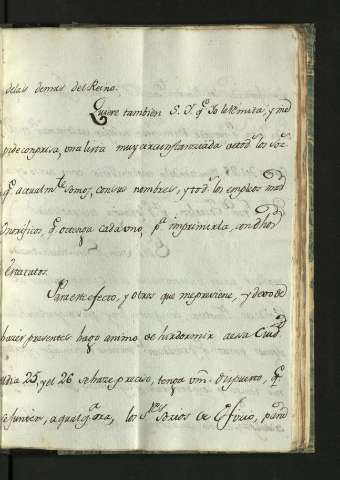 delas demas del Reino.
Quiere tambien S. I. q.e Io le Remita, y me
pide con prisa, una lista muy circunstanciada de tod.s los Soc.s
q.e actualm.te somos, con sus nombres, y tod.s los empleos mas
Onorificos, q.e obtenga cada uno, p.a imprimirla, con dhos
Estatutos.
Para este efecto, y otros que me previene, y devo de
hazer presentes hago animo de hir dormir a essa Ciud.d
el dia 25, y el 26 se haze preciso, tenga vm. dispuesto, q.e
se junten, a qualq.r ora, los S.res Socios de Oficio, para